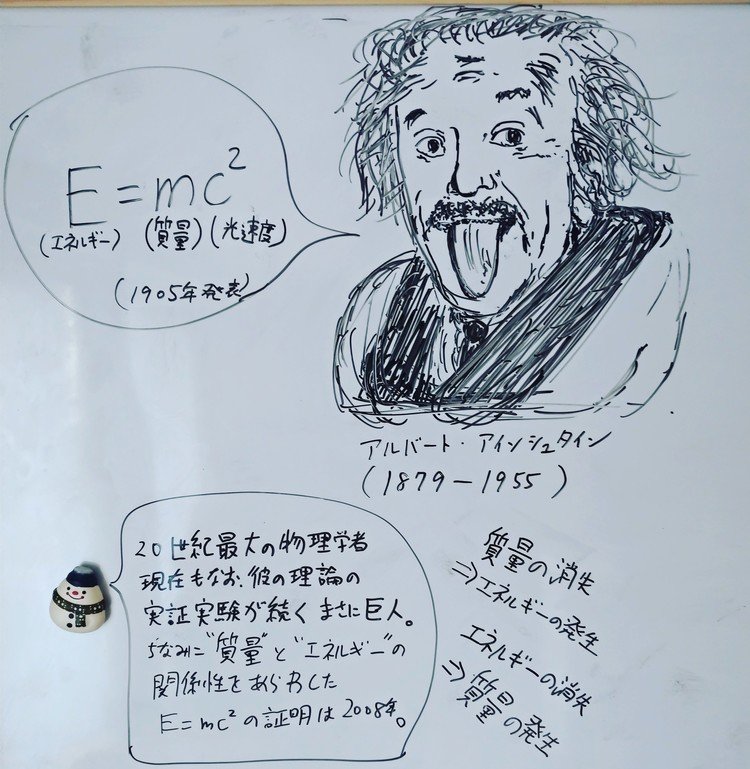 E=mc²
(エネルギー) (質量) (光速度)
(1905年発表)
アルバート・アインシュタイン
(1879-1955)
20世紀最大の物理学者
現在もなお、彼の理論の
実証実験が続くまさに巨人。
ちなみに"質量"と"エネルギー"の
関係性をあらわした
E=mc²の証明は2008年。
質量の消失
⇒エネルギーの発生
エネルギーの消失
⇒質量の発生